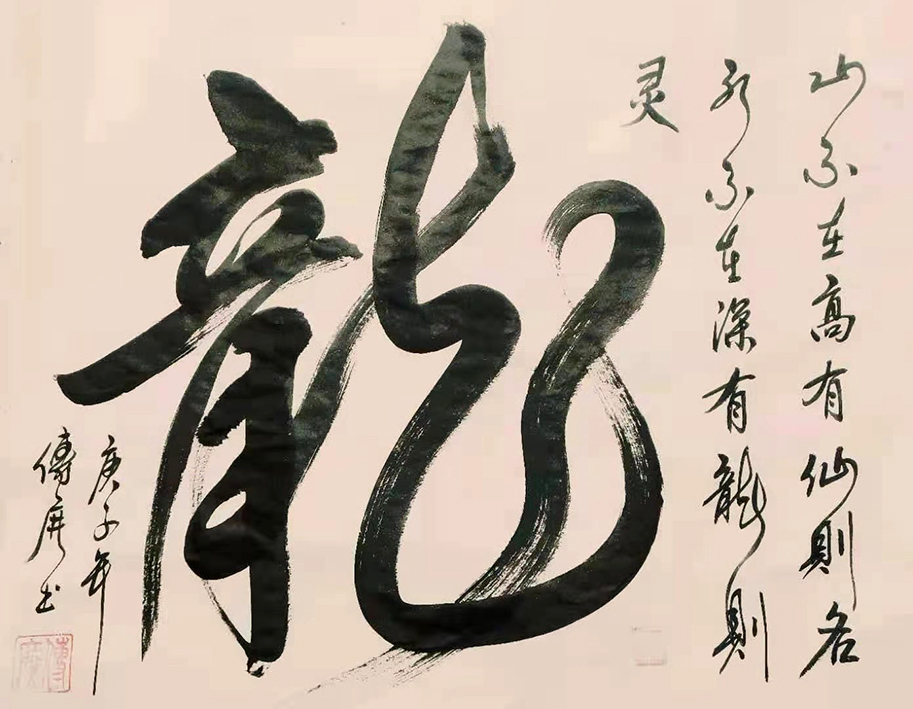 山不在高有仙則名
水不在深有龍則
灵
龍
庚子年
书